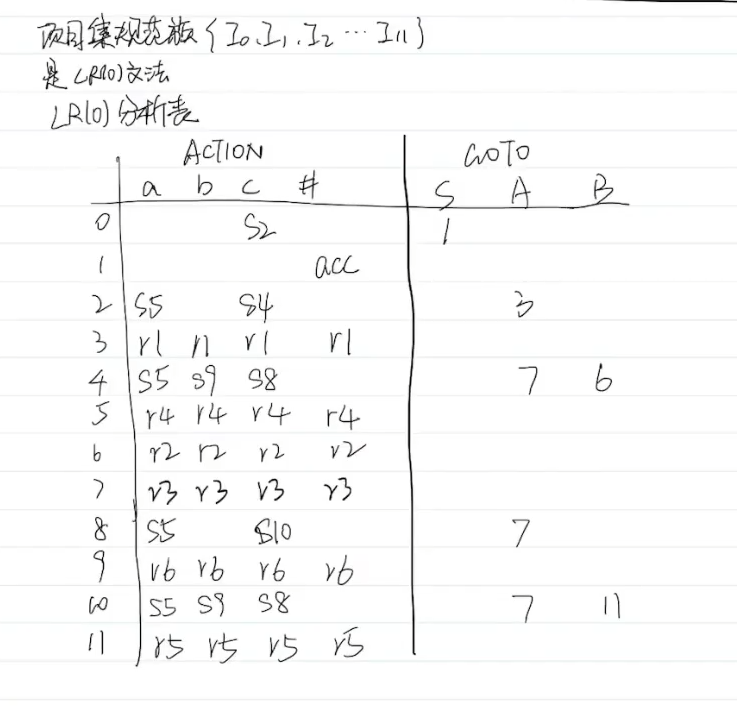 项目集规范族{I0,I1,I2…I11}
是LR(0)文法
LR(0)分析表
ACTION GOTO
a b c # S A B
0 S2 1
1 acc
2 S5 S4 3
3 r1 r1 r1 r1
4 S5 S9 S8 7 6
5 r4 r4 r4 r4
6 r2 r2 r2 r2
7 r3 r3 r3 r3
8 S5 S10 7
9 r6 r6 r6 r6
10 S5 S9 S8 7 11
11 r5 r5 r5 r5